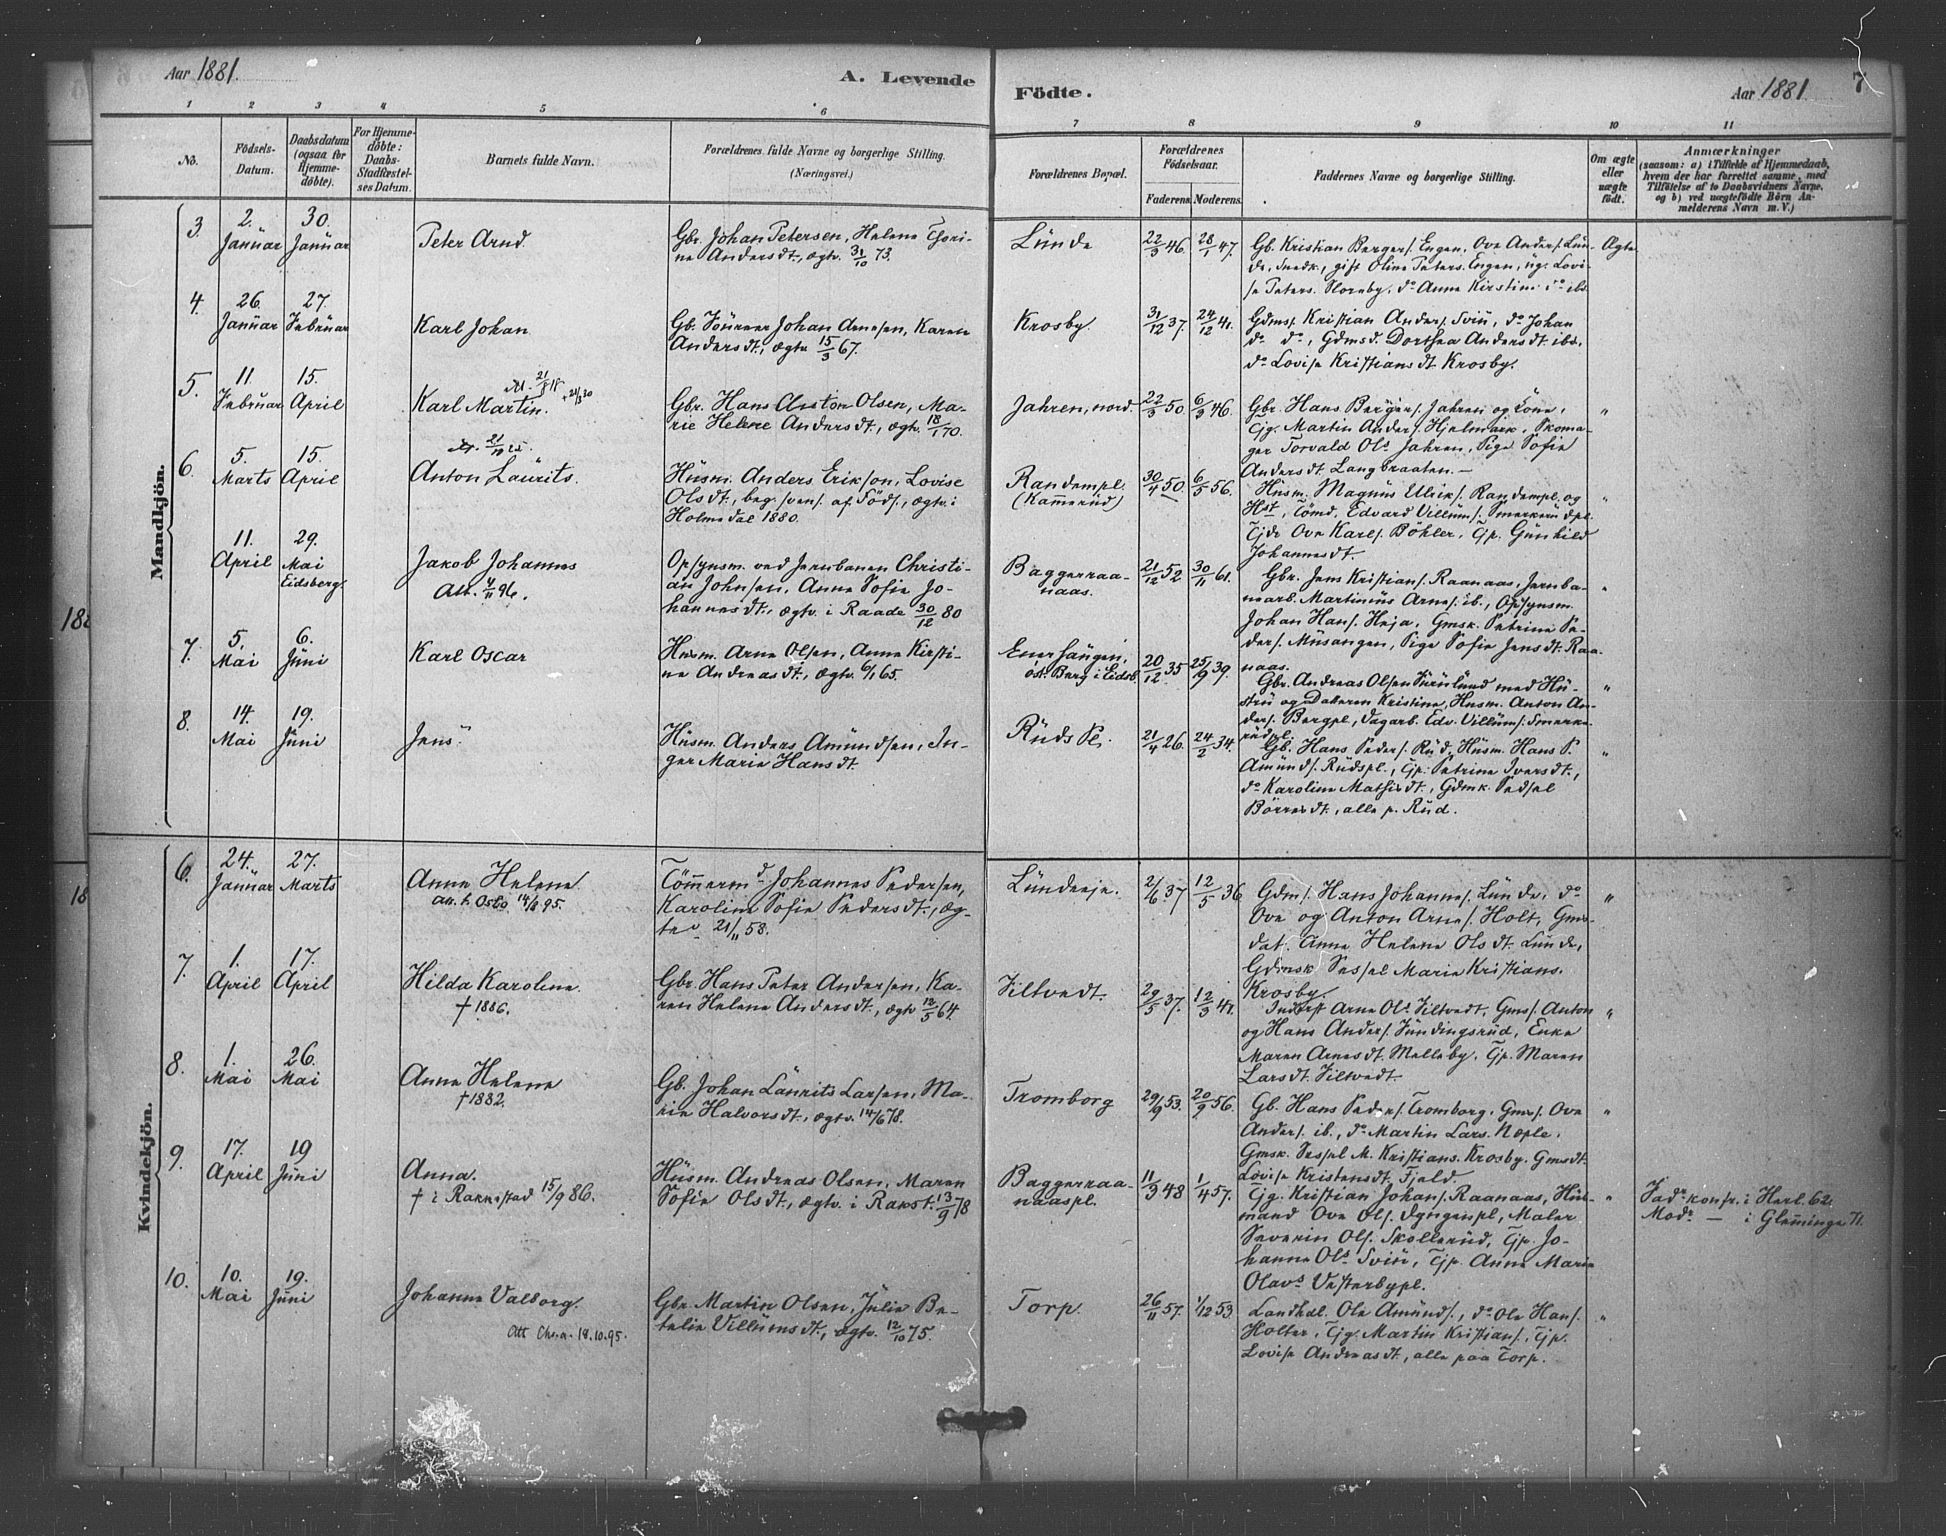 Aar 1881.
A. Levende
Födte.
Aar 1881.
7
1 2 3 4 5 6 7 8 9 10 11
No.
Födsels-
Datum.
Daabsdatum
(ogsaa for
Hjemme-
döbte).
For Hjemme-
döbte:
Daabs-
Stadfæstel-
ses Datum.
Barnets fulde Navn.
Forældrenes fulde Navne og borgerlige Stilling.
(Næringsvei.)
Forældrenes Bopæl.
Forældrenes
Födselsaar.
Faderens
Moderens.
Faddernes Navne og borgerlige Stilling.
Om ægte
eller
uægte
födt.
Anmærkninger
(saasom: a) i Tilfælde af Hjemmedaab,
hvem der har forrettet samme, med
Tilföielse af to Daabsvidners Navne,
og b) ved uægtefödte Börn An-
melderens Navn m. V.)
Mandkjön.
3. 2. Januar
30. Januar
Peter Arnd.
Gbr. Johan Petersen, Helene Thori-
ne Andersdt., ægtv. 31/10 73.
Lunde
22/3 46.
28/1 47.
Gb. Kristian Berger/. Engen, Ove Anders/. Lun-
de, Snedk., gift Oline Peters. Engen, ug. Lovi-
se Peters. Sloreby, do Anne Kirstine do ibd.
Ægte
4. 26. Januar
27. Februar
Karl Johan
Gb. Johan Arnesen, Karen
Andersdt., ægtv. 15/3 67.
Krosby.
31/12 37.
24/12 41.
Gdms/. Kristian Anders/. Sviu, do Johan
do do, Gdmsd. Dorthea Andersdt. ibd.,
do Lovise Kristiansdt. Krosby.
5. 11. Februar
15. April
Karl Martin.
+ 21/3 30
Gbr. Hans Anton Olsen, Ma-
rie Helene Andersdt., ægtv. 18/1 70.
Jahren, nord.
22/3 50
6/9 46.
Gbr. Hans Berger/. Jahren og Kone,
Tjg. Martin Anders/. Hjelmark, Skoma-
ger Torvald Ols. Jahren, Pige Sofie
Andersdt. Langbraaten. —
"
6. 5. Marts
15. April
Anton Laurits.
Husm. Anders Erikson, Lovise
Olsdt., beg. svens/. af Föds/., ægtv. i
Holmedal 1880.
Randempl.
(Kamerud)
30/4 50.
6/5 56.
Husm. Magnus Ulrik/. Randempl. og
Hst., Tömd. Edvard Villum/. Smerkerudpl.
Tjdr. Ove Karl/. Böhler, Tjp. Gunhild
Johannesdt.
"
11. April
29. Mai
Eidsberg
Jakob Johannes
Att. 4/11 96.
Opsynsm. ved Jernbanen Christi-
an Johnsen, Anne Sofie Jo-
hannesdt., ægtv. i Raade 30/12 80
Baggerraa-
naas.
21/12 52
30/11 61.
Gbr. Jens Kristian/. Raanaas, Jernba-
nearb. Martinius Arnes/. ib., Opsynsm.
Johan Hans/. Heja, Gmsk. Petrine Pe-
ders/. Musangen, Pige Sofie Jensdt. Raa-
naas.
"
7. 5. Mai
6. Juni
Karl Oscar
Husm. Arne Olsen, Anne Kirsti-
ne Andreasdt., ægtv. 6/1 65.
Enerhaugen,
öst. Berg i Eidsb.
20/12 35
25/9 39.
Gbr. Andreas Olsen Furulund med Hu-
stru og Datteren Kristine, Husm. Anton An-
ders/. Bergpl., Dagarb. Edv. Villum/. Smerke-
rudpl.
"
8. 14. Mai
19. Juni
Jens.
Husm. Anders Amundsen, In-
ger Marie Hansdt.
Ruds Pl.
21/4 26.
24/2 34.
Gb. Hans Peder/. Rud, Husm. Hans P.
Amund/. Rudspl., Tjp. Petrine Iversdt.,
do Karoline Mathisdt., Gdmk. Sessel
Börresdt., alle p. Rud.
"
Kvindekjön.
6. 24. Januar
27. Marts
Anne Helene
Att. t. Oslo 14/8 95.
Tömmermd Johannes Pedersen,
Karoline Sofie Pedersdt., æg-
tev. 21/11 58.
Lundeeje.
2/6 37
12/5 36
Gdm/. Hans Johannes/. Lunde, do
Ove og Anton Arne/. Holt, Gms-
dat. Anne Helene Olsdt. Lunde,
Gdmsk. Sessel Marie Kristians.
Krosby.
"
7. 1. April
17. April
Hilda Karoline.
† 1886.
Gbr. Hans Peter Andersen, Ka-
ren Helene Andersdt., ægtv. 12/5 64.
Tiltvedt.
29/5 37.
12/3 41.
Inderst Arne Ols. Tiltvedt, Gms/. Anton
og Hans Anders/. Fundingsrud, Enke
Maren Arnesdt. Melleby, Tjp. Maren
Larsdt. Tiltvedt.
"
8. 1. Mai
26. Mai
Anne Helene
† 1882.
Gb. Johan Laurits Larsen, Ma-
rie Halvorsdt., ægtv. 14/6 78.
Tromborg
29/9 53.
20/9 56.
Gb. Hans Peders/. Tromborg, Gms/. Ove
Anders/. ib., do Martin Lars. Næple,
Gmsk. Sessel M. Kristians. Krosby, Gmsdt.
Lovise Kristensdt. Fjeld.
"
9. 17. April
19 Juni
Anna.
† i Rakkestad 15/9 86.
Husm. Andreas Olsen, Maren
Sofie Olsdt., ægtv. i Rakst. 13/9 78
Baggerraa-
naaspl.
11/3 48
1/4 57.
Tjg. Kristian Johan/. Raanaas, Hus-
mand Ove Ols/. Dyngenpl., Maler
Severin Ols/. Skollerud, Tjp. Jo-
hanne Ols. Sviu, Tjp. Anne Marie
Olavs Vesterbypl.
"
Fadr. konfr. i Herl. 62.
Modr. — i Glemminge 71.
10. 10. Mai
19. Juni
Johanne Valborg.
Att Chra. 18.10.95.
Gbr. Martin Olsen, Julie Be-
talie Villumsdt., ægtv. 12/10 75.
Torp
26/11 57.
1/12 53
Landhdl. Ole Amunds/., do Ole Hans/.
Holter, Tjg. Martin Kristian/., Tjp.
Lovise Andreasdt., alle paa Torp.
"